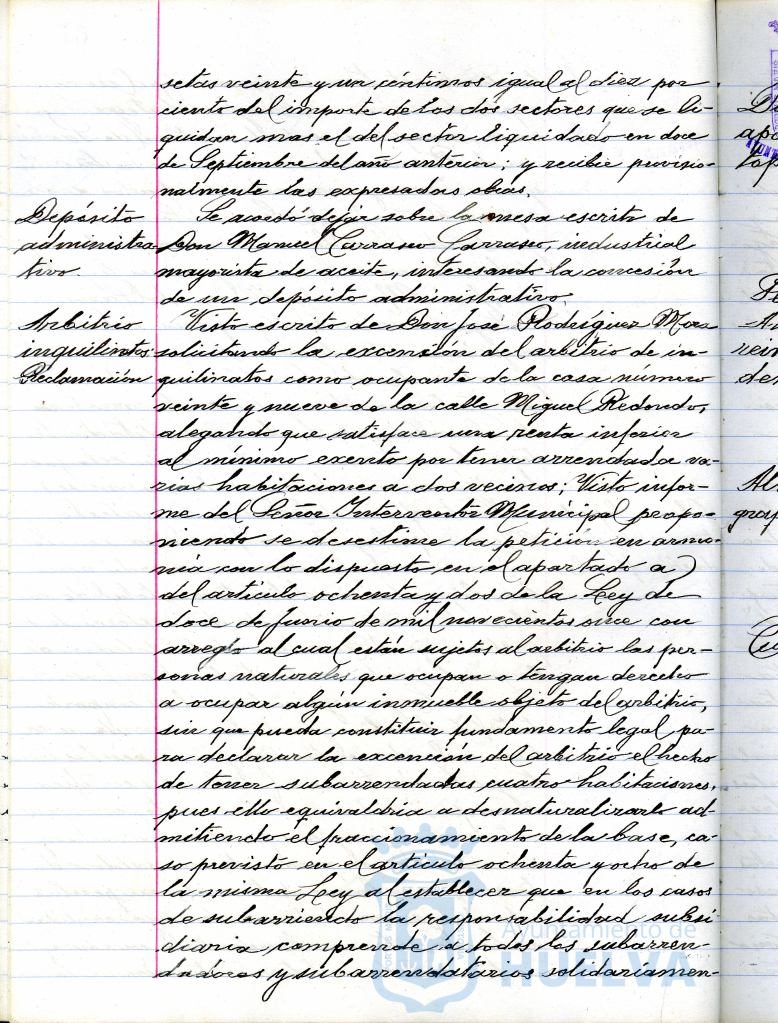 setas veinte y un céntimos igual al diez por
ciento del importe de los dos sectores que se li-
quidan mas el del sector liquidado en doce
de Septiembre del año anterior; y recibir provisio-
nalmente las expresadas obras.
Depósito
administra-
tivo.
Se acordó dejar sobre la mesa escrito de
Don Manuel Carrasco Carrasco, industrial
mayorista de aceite, interesando la concesión
de un depósito administrativo.
Arbitrio
inquilinatos.
Reclamación
Visto escrito de Don José Rodríguez Mora
solicitando la excención del arbitrio de in-
quilinatos como ocupante de la casa número
veinte y nueve de la calle Miguel Redondo,
alegando que satisface una renta inferior
al mínimo exento por tener arrendada va-
rias habitaciones a dos vecinos; Visto infor-
me del Señor Interventor Municipal propo-
niendo se desestime la petición en armo-
nia con lo dispuesto en el apartado a)
del artículo ochenta y dos de la Ley de
doce de Junio de mil novecientos once con
arreglo al cual están sujetos al arbitrio las per-
sonas naturales que ocupan o tengan derecho
a ocupar algún inmueble objeto del arbitrio,
sin que pueda constituir fundamento legal pa-
ra declarar la excención del arbitrio el hecho
de tener subarrendadas cuatro habitaciones,
pues ello equivaldria a desnaturalizarlo ad-
mitiendo el fraccionamiento de la base, ca-
so previsto en el artículo ochenta y ocho de
la misma Ley al establecer que en los casos
de subarriendo la responsabilidad subsi-
diaria comprende a todos los subarren-
dadores y subarrendatarios solidariamen-
Ayuntamiento de
HUELVA